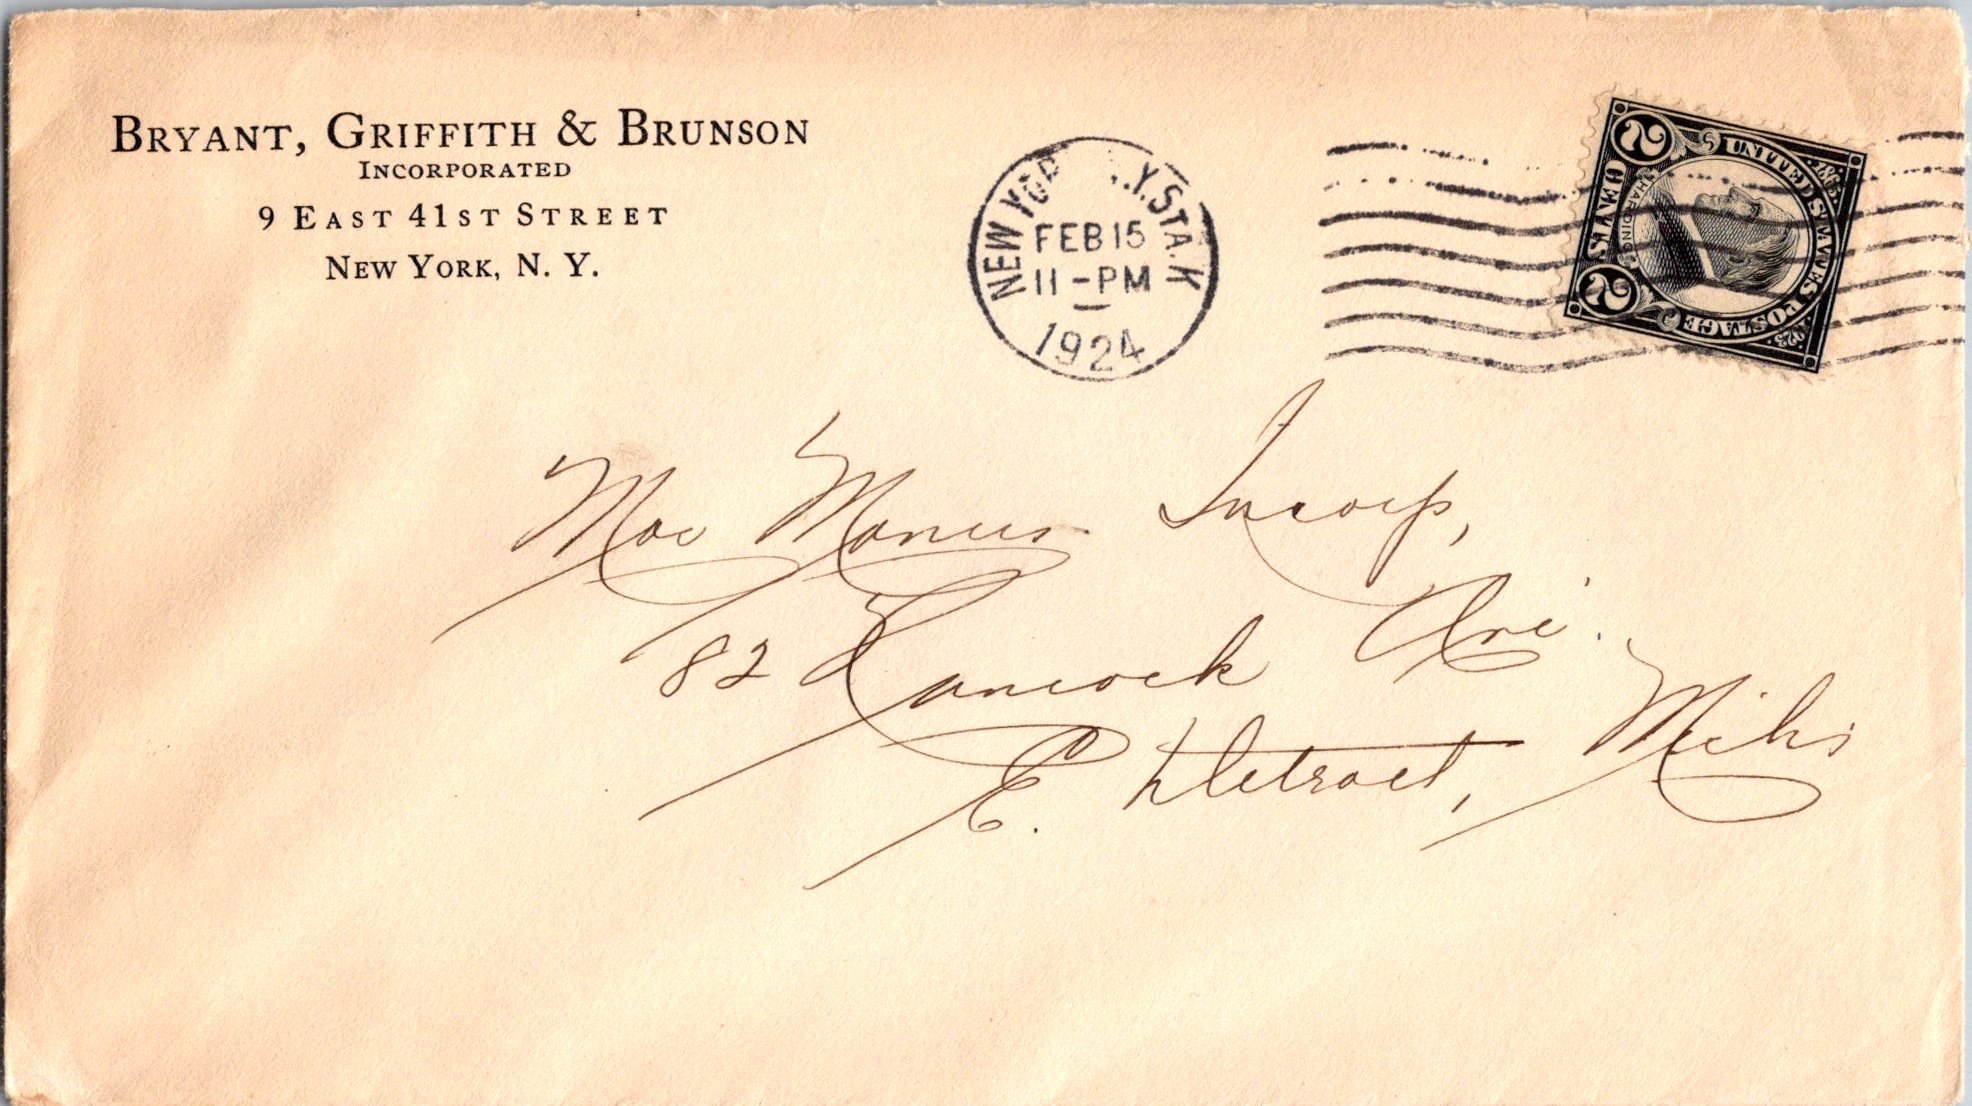 BRYANT, GRIFFITH & BRUNSON
INCORPORATED
9 EAST 41ST STREET
NEW YORK, N. Y.
NEW YOR .Y. STA. K
FEB 15
11-PM
1924
UNITED STATES POSTAGE
1865
1923
HARDING
2 CENTS 2
Mac Manus Incorp,
82 Hancock Ave.
E. Detroit, Mich